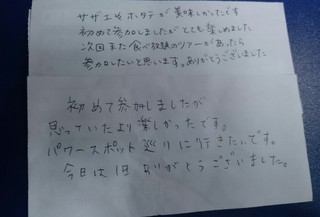 サザエやホタテが美味しかったです
初めて参加しましたがとても楽しめました
次回また食べ放題のツアーがあったら
参加したいと思います。ありがとうございました
初めて参加しましたが
思っていたより楽しかったです。
パワースポット巡りに行きたいです。
今日は1日ありがとうございました。